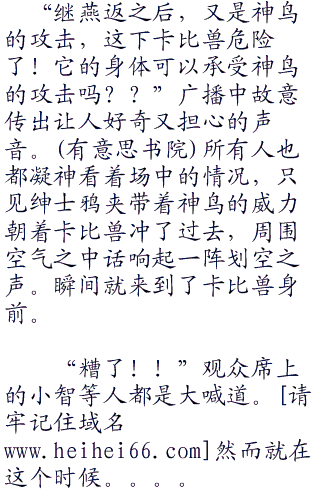 “继燕返之后，又是神鸟
的攻击，这下卡比兽危险
了！它的身体可以承受神鸟
的攻击吗？？”广播中故意
传出让人好奇又担心的声
音。(有意思书院)所有人也
都凝神看着场中的情况，只
见绅士鸦夹带着神鸟的威力
朝着卡比兽冲了过去，周围
空气之中话响起一阵划空之
声。瞬间就来到了卡比兽身
前。
“糟了！！”观众席上
的小智等人都是大喊道。[请
牢记住域名
www.heihei66.com]然而就在
这个时候。。。。